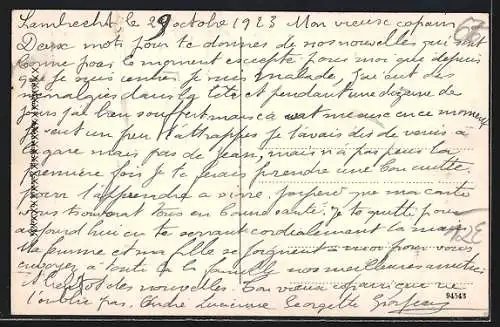 Lambrecht le 29 octobre 1923 Mon vieux copain
Deux mots pour te donner de nos nouvelles qui sont
bonne pour le moment excepté pour moi que depuis
que je suis rentrer je suis malade, j'ai eut des
névralgies dans la tête et pendant une dizaine de
jours j'ai bien souffert mais ça vat mieux en ce moment
un peu l'attrappes je t'avais dis de venir à
la gare mais pas de Jean, mais n'a pas peur la
première fois je te ferais prendre une bon cuitte
pour t'apprendre a vivre. J'espère que ma carte
vous trouveront tous en bonne santé. Je te quitte pour
aujourd'hui en te serrant cordialement la main
Ma femme et ma fille se joignent a moi pour vous
envoyez a toute la family nos meilleures amitiés
A bientôt des nouvelles. Ton vieux copain qui ne
t'oublie pas. Andre Lucienne Georgette
94548